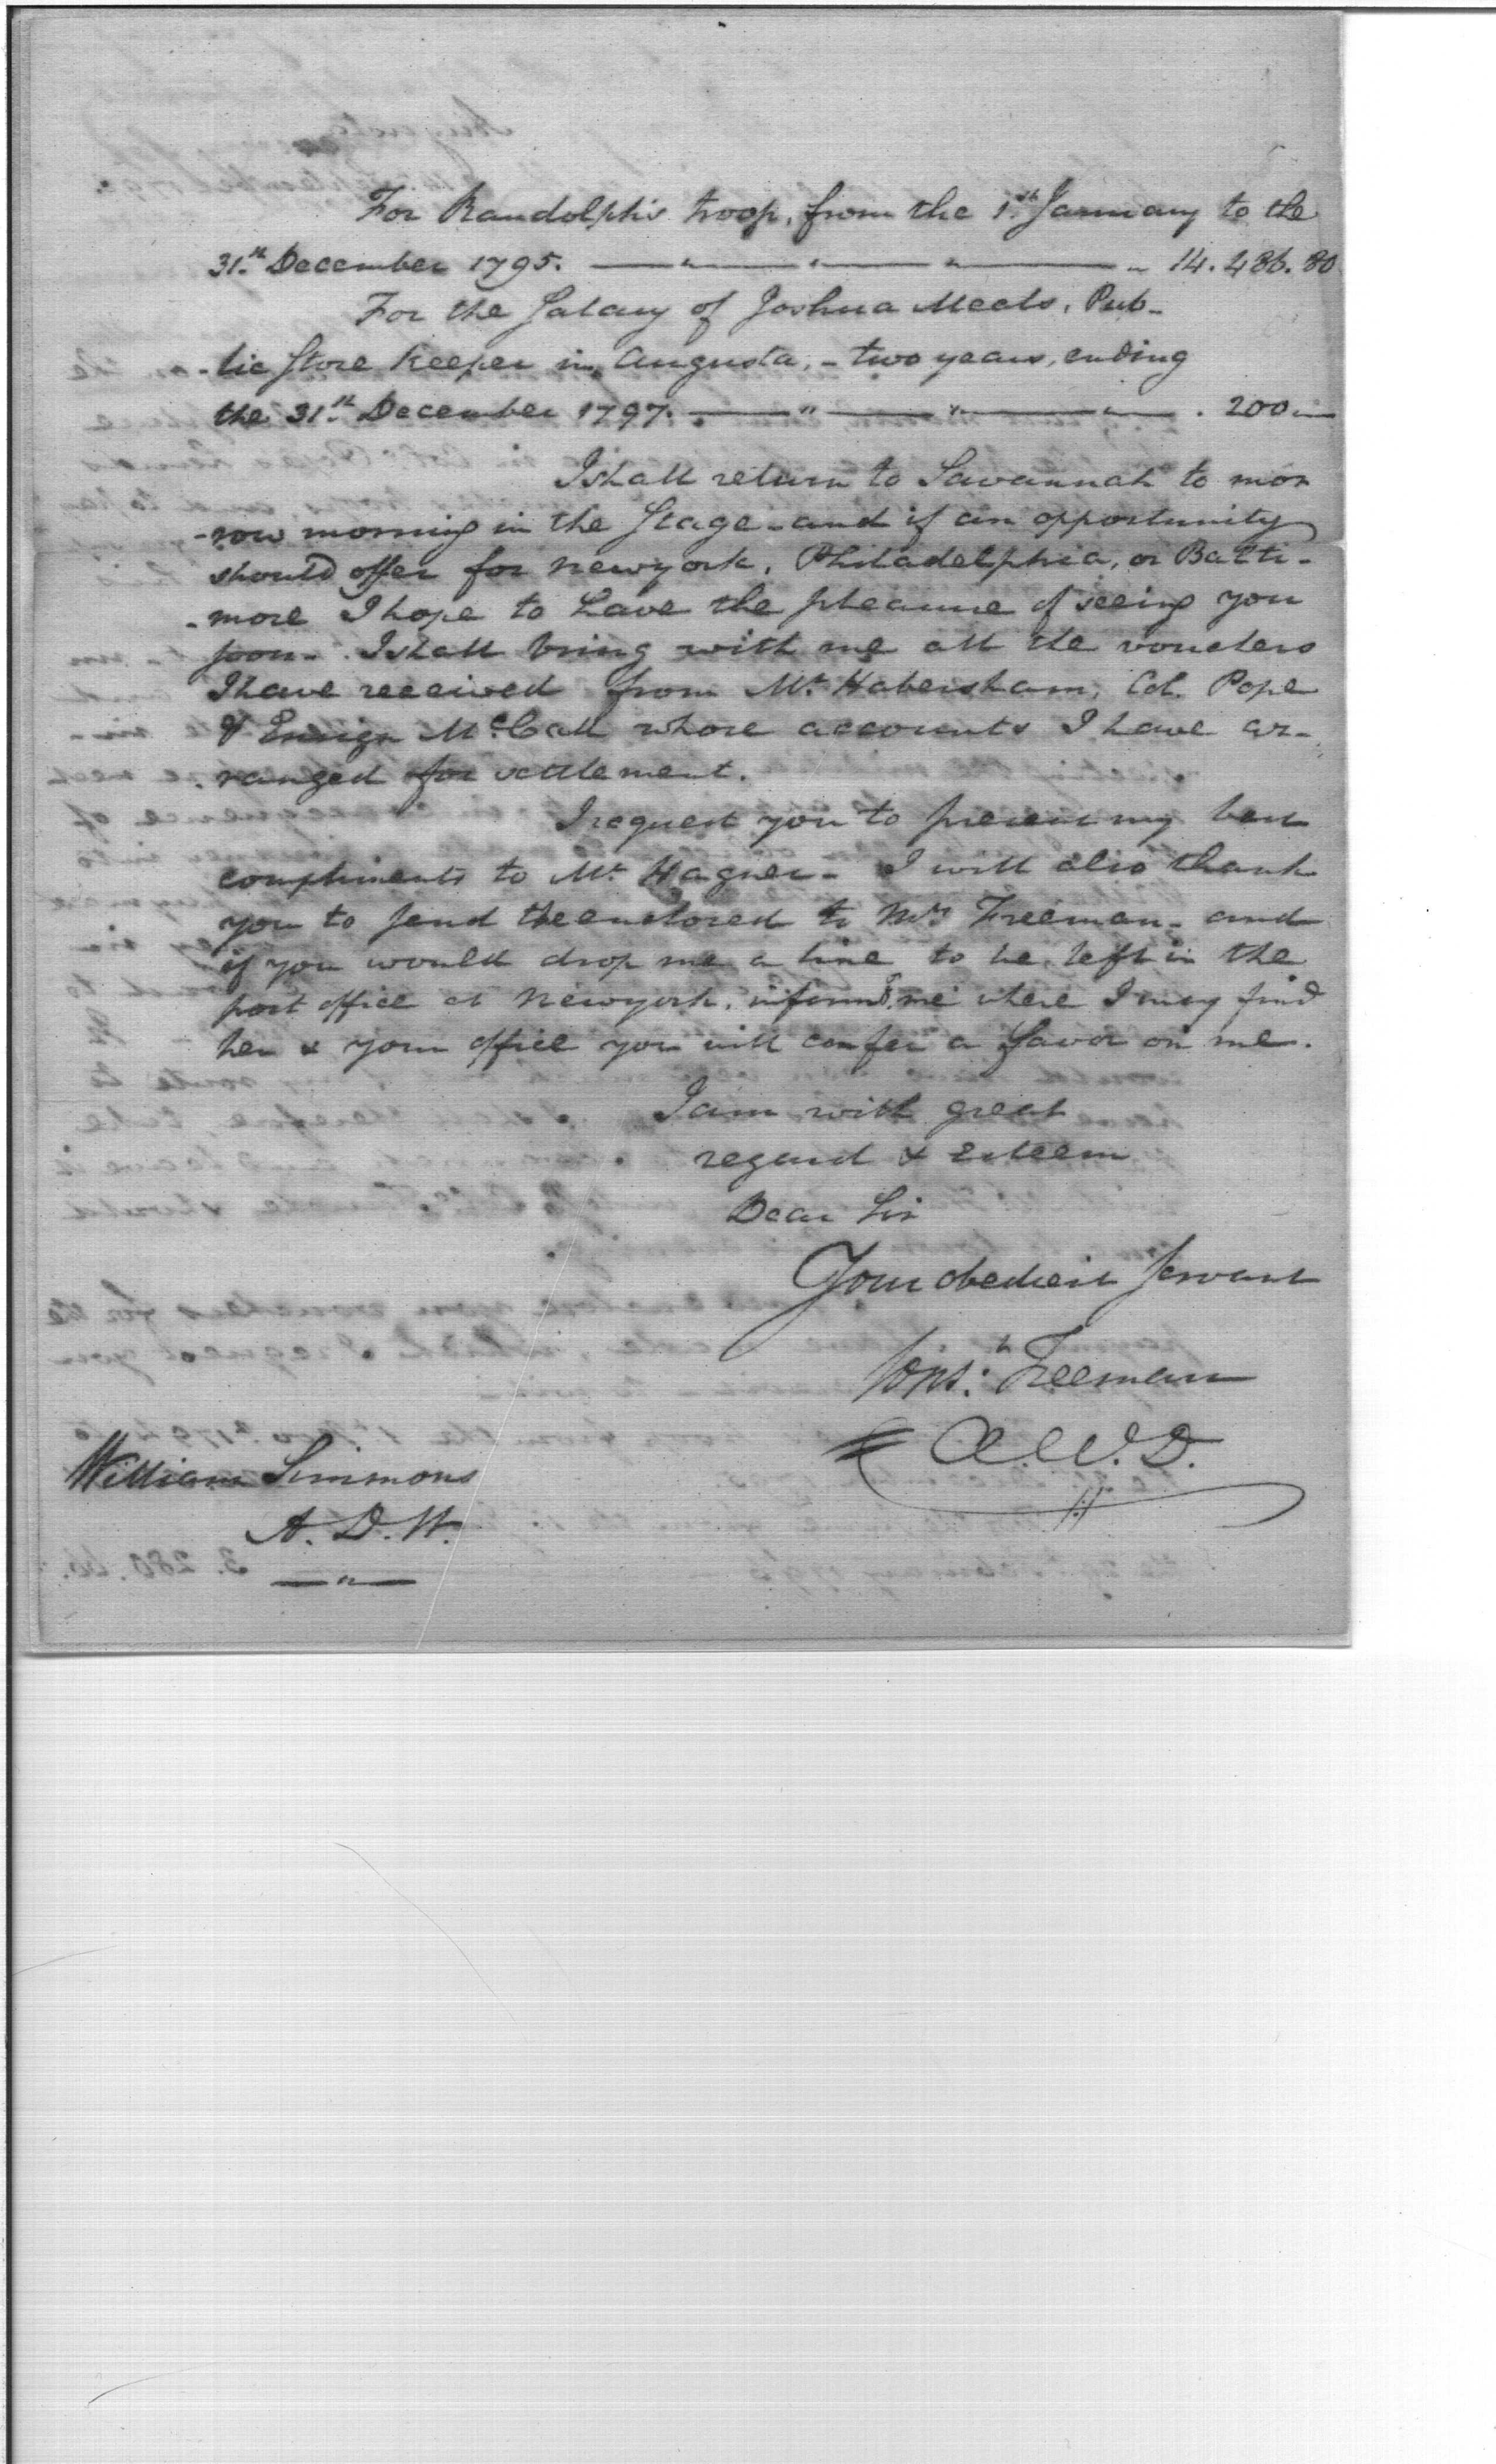 For Randolph's troop, from the 1st January to the
31.st December 1795. — " — " — " — " 14.486.80
For the Salary of Joshua Meals, Pub-
-lic Store Keeper in Augusta, - two years, ending
the 31.st December 1797. — " — " — " — . 200 "
I shall return to Savannah to mor
-row morning in the Stage - and if an opportunity
should offer for Newyork, Philadelphia, or Balti-
-more I hope to have the pleasure of seeing you
soon - I shall bring with me all the vouchers
I have received from Mr. Habersham, Col. Pope
& Ensign McCall whose accounts I have ar-
ranged for settlement.
I request you to present my best
compliments to Mr. Hagner - I will also thank
you to send the enclosed to Mrs Freeman - and
if you would drop me a line to be left in the
post office at Newyork, informg me where I may find
her & your office you will confer a favor on me.
I am with great
regard & esteem
Dear Sir
Your obedient servant
Const: Freeman
A.W.D.
William Simmons
A.D.W.
— " —